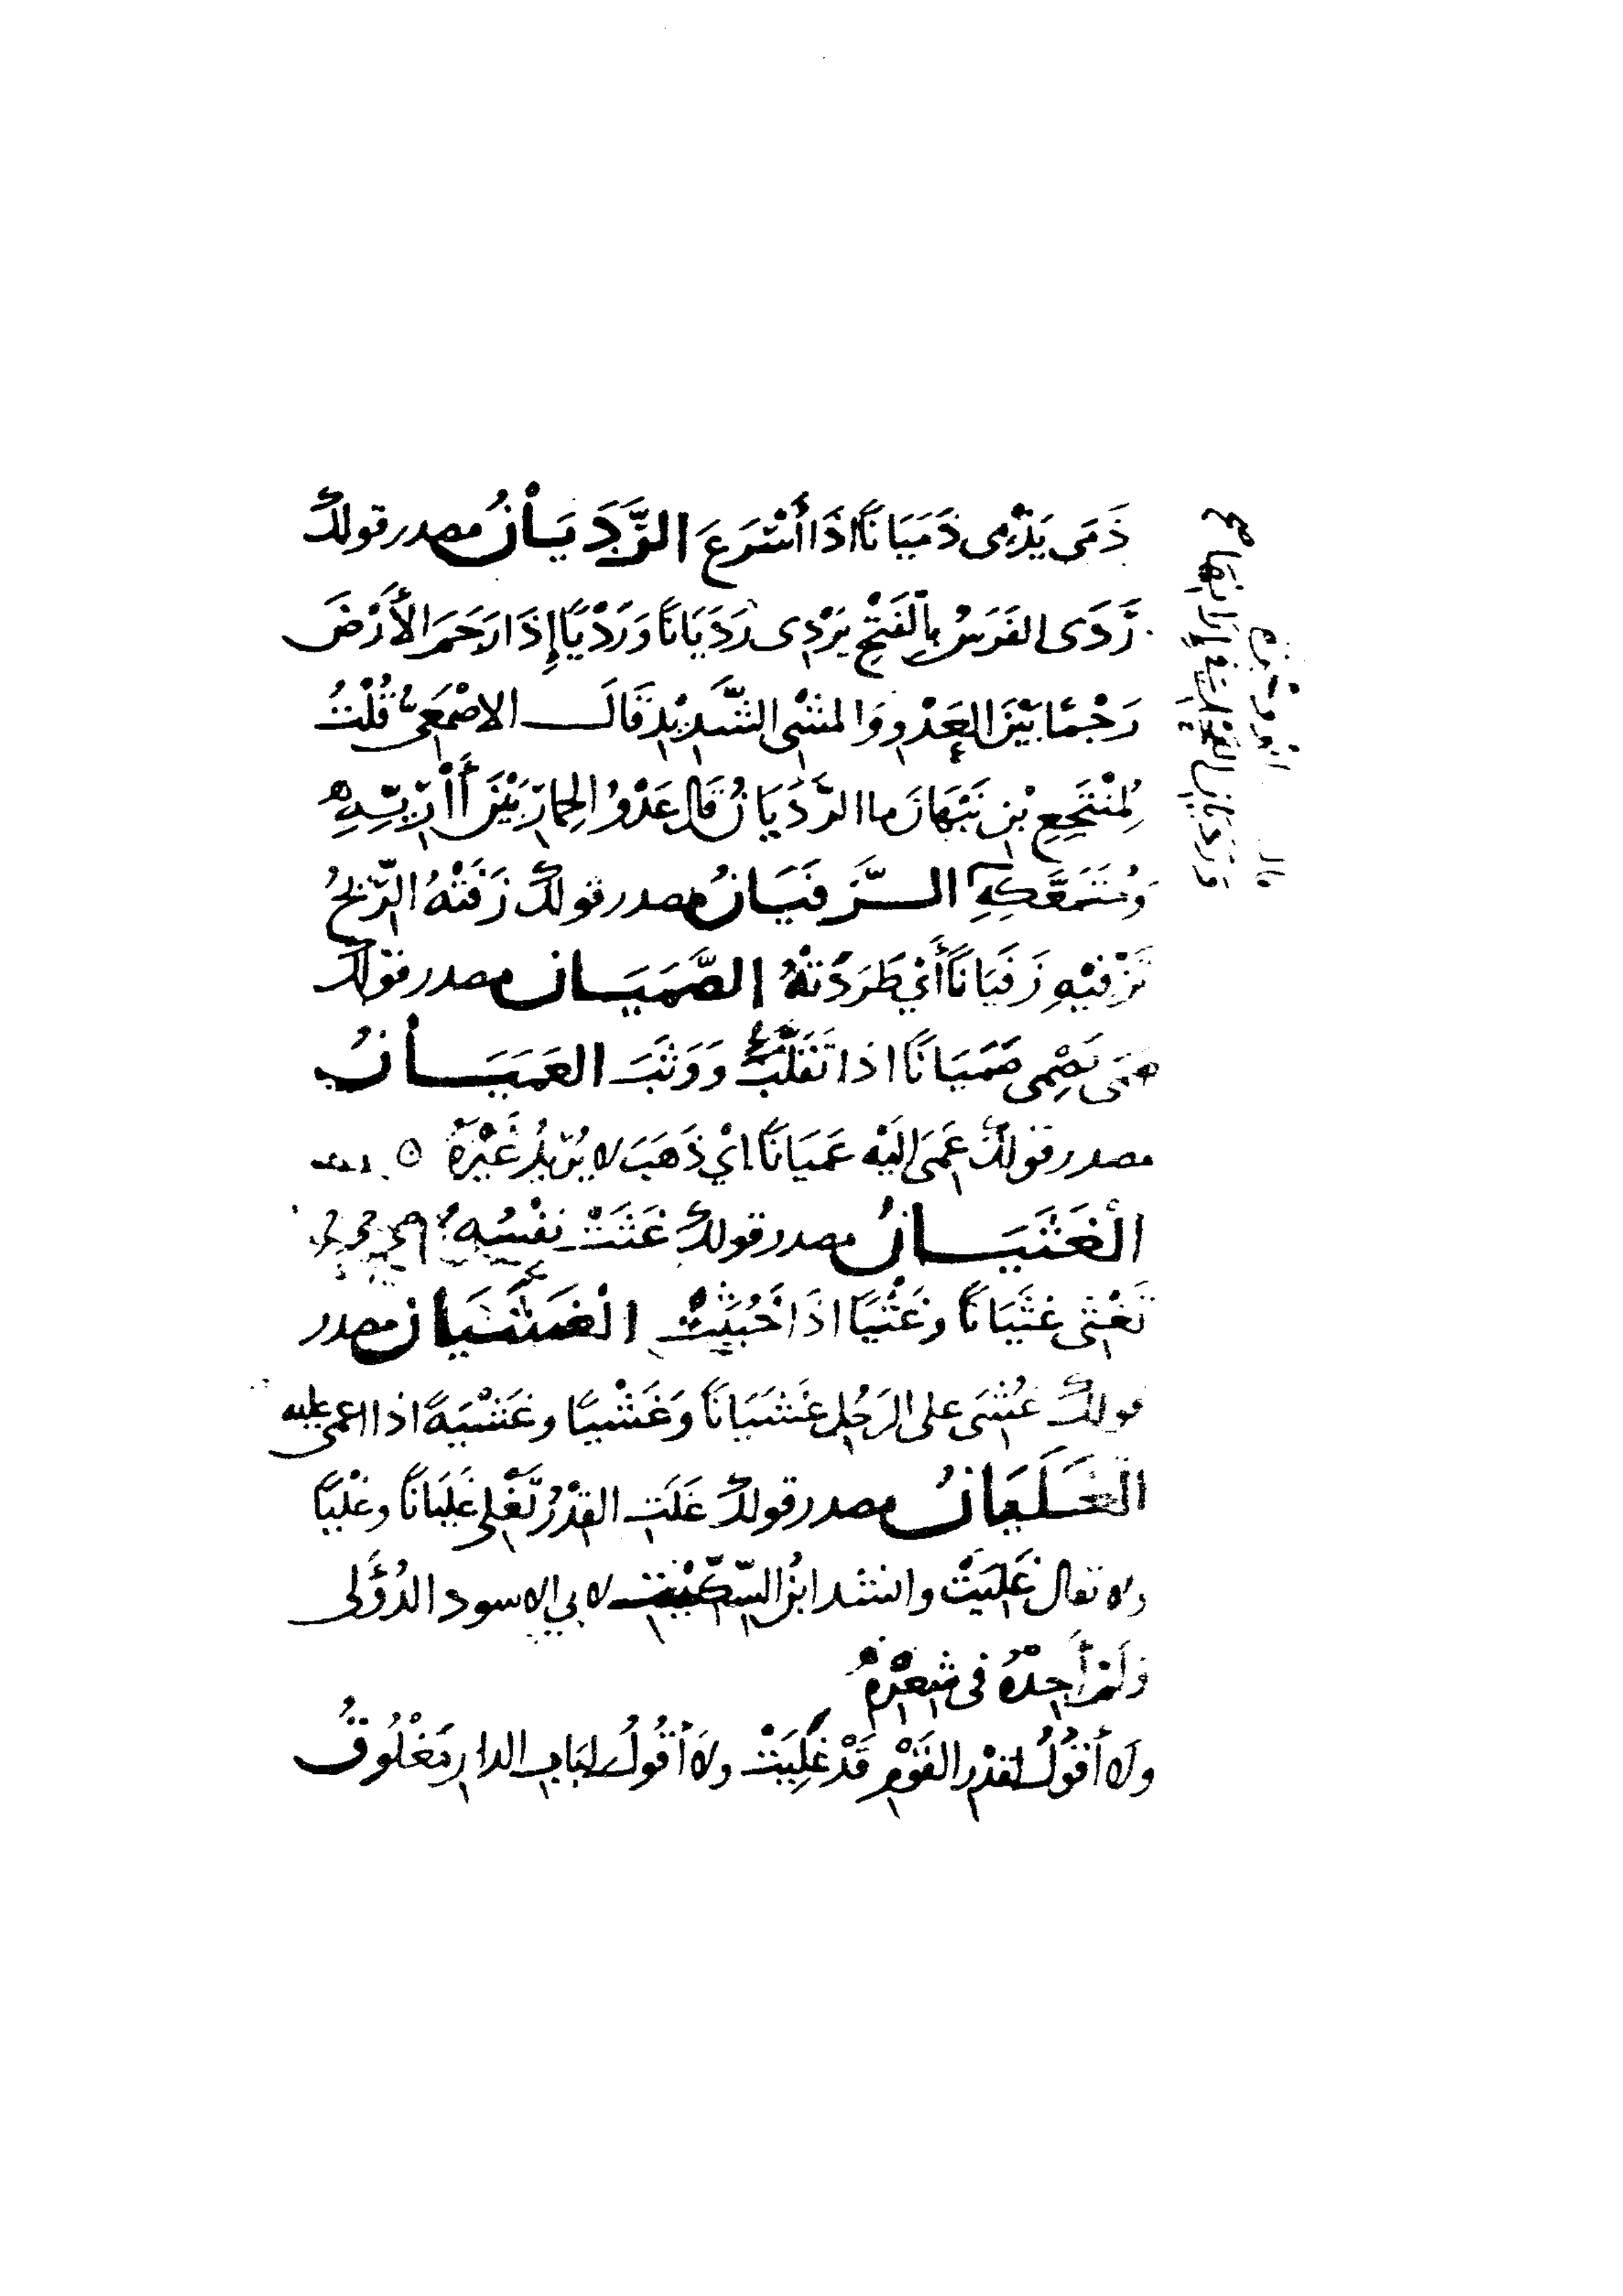 ذَمَى يَذْمِى ذَمَيَانًا اذَا أَسْرَعَ الرَّدَيَانُ مصدر قولك
رَدَى الفَرَسُ بِالْفَتْحِ يَرْدِى رَدَيَانًا وَرَدْيًا إِذَا رَجَمَ الأَرْضَ
رَجْمًا بَيْنَ العَدْوِ وَالمَشْىِ الشَّدِيْدِ قَالَ الاصْمَعِىُّ قُلْتُ
لِمُنْتَجِعِ بْنِ نَبْهَانَ ما الرَّدَيَانُ قَالَ عَدْوُ الحِمَارِ بَيْنَ أَارِيِّهِ
وَمُتَمَعَّكِهِ الزَّفَيَانُ مصدر قولك زَفَتْهُ الرِّيْحُ
تَزْفِيْهِ زَفَيَانًا أَيْ طَرَدَتْهُ الصَّمَيَان مصدر قولك
صَمَى يَصْمِى صَمَيَانًا اذا تَقَلَّبَ وَوَثَبَ العَمَيَانُ
مصدر قولك عَمَى إِلَيْهِ عَمَيَانًا ايْ ذَهَبَ لا يُرِيْدُ غَيْرَهُ
الْغَثَيَانُ مصدر قولك غَثَتْ نَفْسُهُ
تَغْثِى غَثَيَانًا وغَثْيًا اذَا خَبُثَتْ الْغَشَيَانُ مصدر
قولك غُشِىَ على الرَجُلِ غَشَيَانًا وَغَشْيًا وغَشْيَةً اذا اغمى عليه
الْغَلَيَانُ مصدر قولك غَلَتِ القِدْرُ تَغْلِى غَلَيَانًا وغَلْيًا
ولا تقال غَلِيَتْ وانشد ابْنُ السِّكِّيْتِ لابي الاسود الدُؤَلى
وَلَمْ أَجِدْهُ فى شِعْرِهْ
ولَا أَقُوْلُ لِقِدْرِ القَوْمِ قَدْ غَلِيَتْ ولَا أَقُولُ لِبَابِ الدارِ مَغْلُوقُ